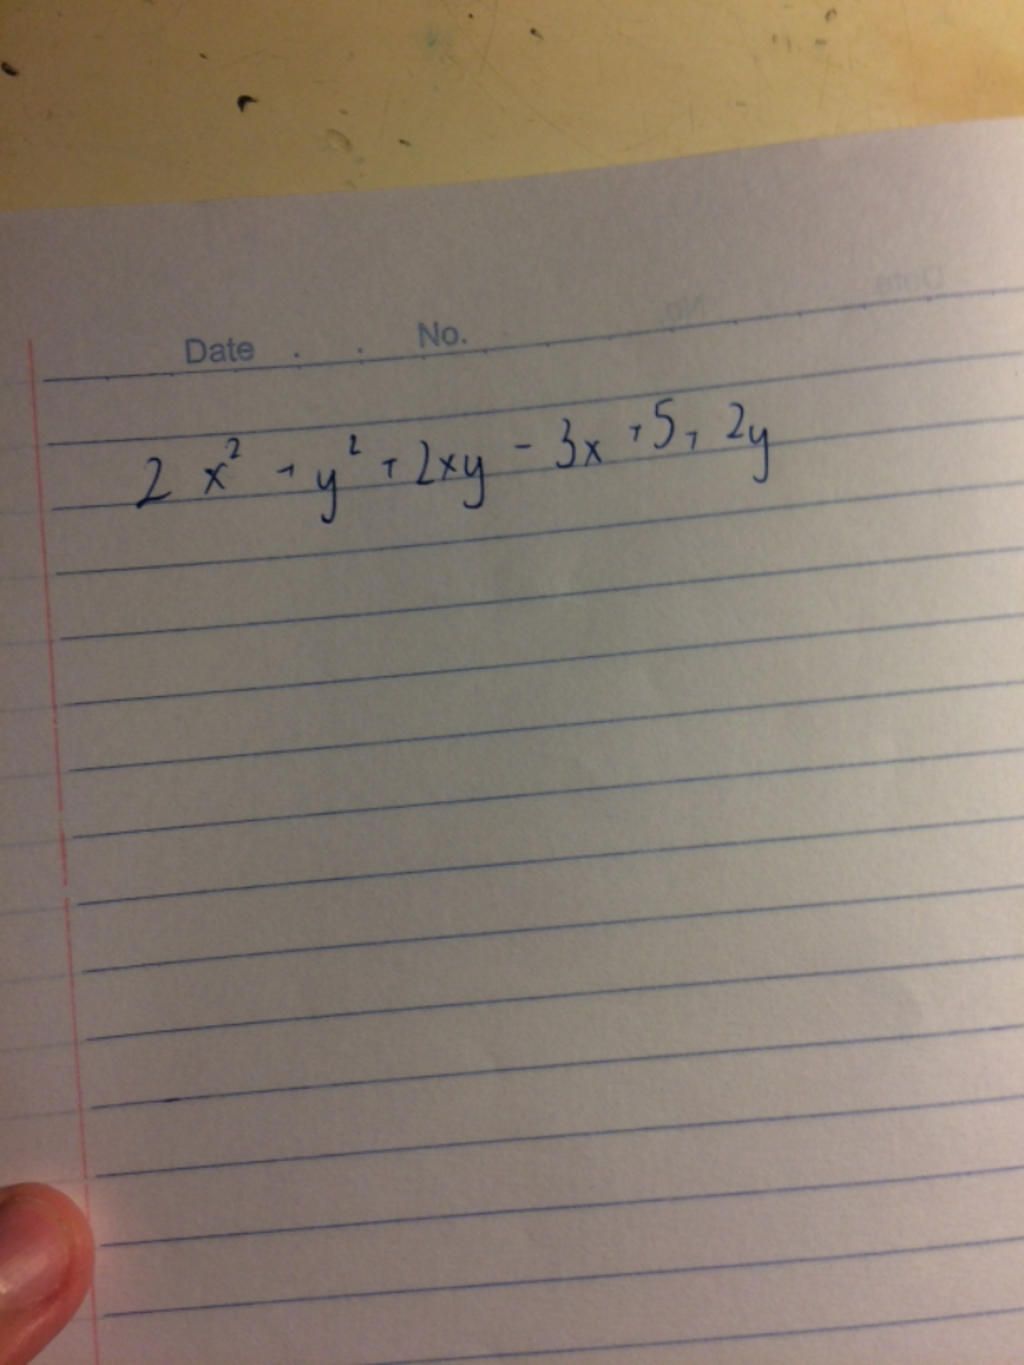 Date . . No.
2 x² + y² + 2xy - 3x + 5 + 2y